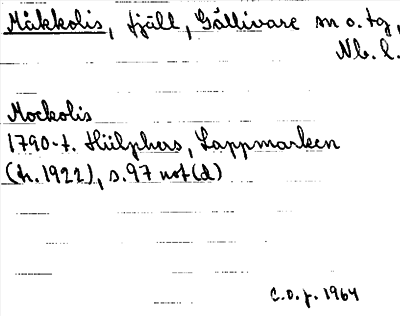 Måkkolis, fjäll, Gällivare sn o. tg,
Nb. l.
Mockolis
1790-t. Hülphers, Lappmarken
(tr. 1922), s. 97 not (d)
C.O.p. 1964